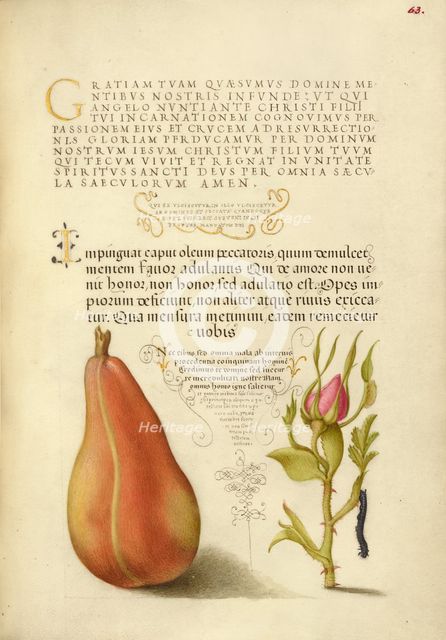 63.
GRATIAM TUAM QUÆSUMUS DOMINE ME-
NTIBUS NOSTRIS INFUNDE: UT QUI
ANGELO NUNTIANTE CHRISTI FILII
TUI INCARNATIONEM COGNOVIMUS PER
PASSIONEM EIUS ET CRUCEM AD RESURRECTIO-
NIS GLORIAM PERDUCAMUR PER DOMINUM
NOSTRUM IESUM CHRISTUM FILIUM TUUM
QUI TECUM VIVIT ET REGNAT IN UNITATE
SPIRITUS SANCTI DEUS PER OMNIA SÆCU-
LA SAECULORUM AMEN.
Impinguat caput oleum peccatoris, quum demulcet
mentem favor adulantis. Qui de amore non ve-
nit honor, non honor, sed adulatio est. Opes im-
piorum deficiunt, non aliter atque rivus exicca-
tur. Qua mensura metimini, eadem remetietur
vobis
Nec cibus, sed omnia mala ab internis
procedentia coinquinant homine
omnis homo igne salietur
Heritage Heritage
Heritage Heritage